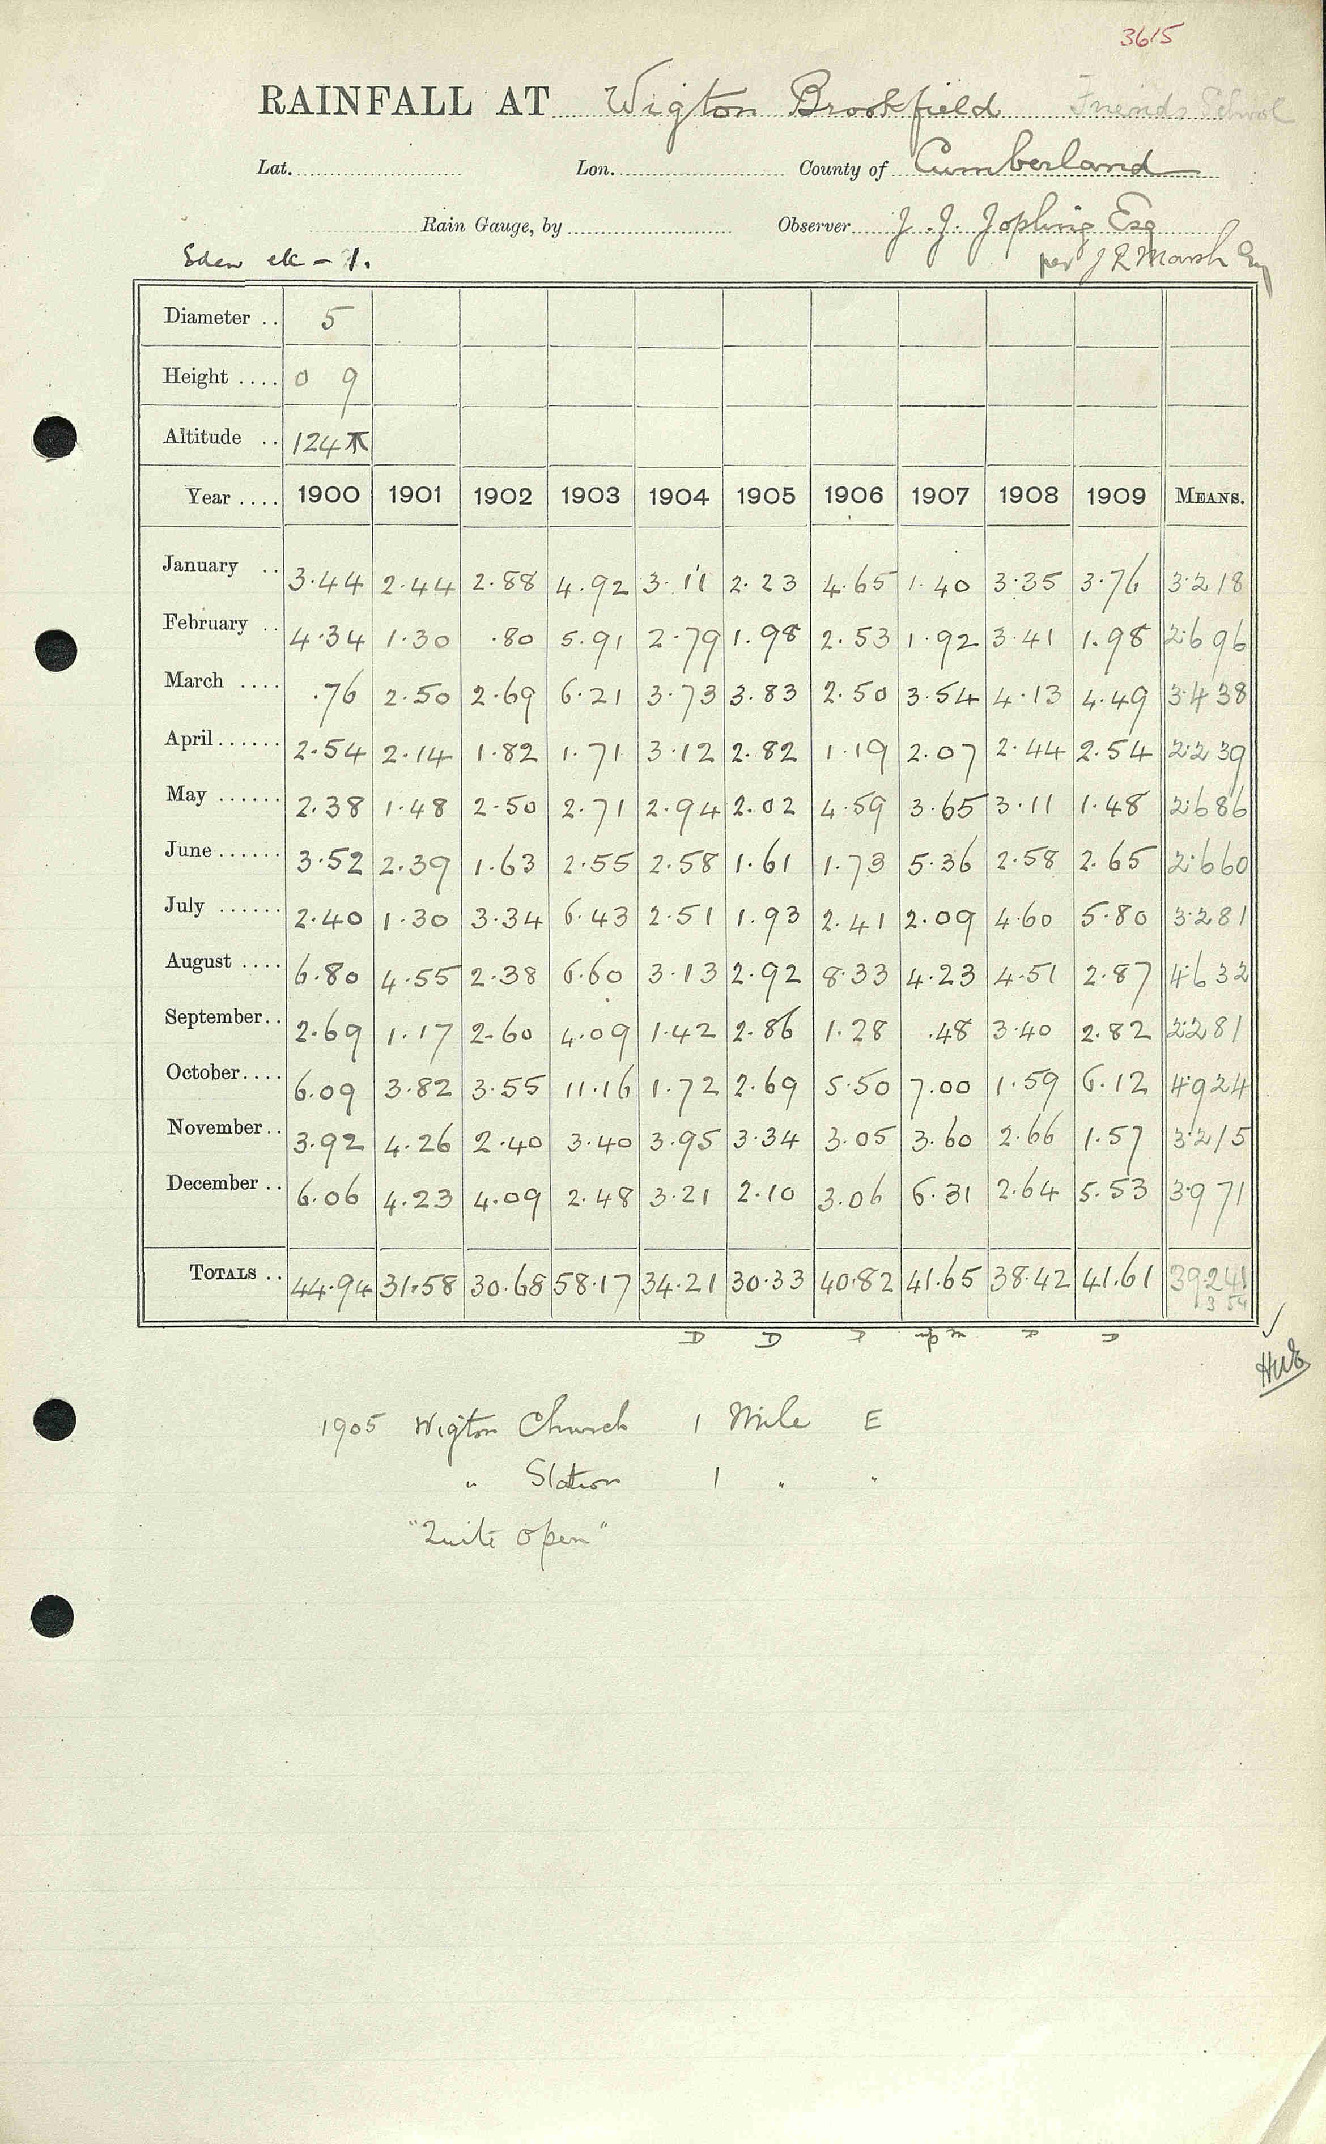 3615
RAINFALL AT Wigton Brookfield Friends School
Lat. Lon. County of Cumberland
Rain Gauge, by Observer J. J. Jopling Esq
Eden etc - 1. per J R Marsh Esq
Diameter .. 5
Height .... 0 9
Altitude .. 124
Year .... 1900 1901 1902 1903 1904 1905 1906 1907 1908 1909 MEANS.
January .. 3.44 2.44 2.88 4.92 3.11 2.23 4.65 1.40 3.35 3.76 3.218
February .. 4.34 1.30 .80 5.91 2.79 1.98 2.53 1.92 3.41 1.98 2.696
March .... .76 2.50 2.69 6.21 3.73 3.83 2.50 3.54 4.13 4.49 3.438
April...... 2.54 2.14 1.82 1.71 3.12 2.82 1.19 2.07 2.44 2.54 2.239
May ...... 2.38 1.48 2.50 2.71 2.94 2.02 4.59 3.65 3.11 1.48 2.686
June...... 3.52 2.39 1.63 2.55 2.58 1.61 1.73 5.36 2.58 2.65 2.660
July ...... 2.40 1.30 3.34 6.43 2.51 1.93 2.41 2.09 4.60 5.80 3.281
August .... 6.80 4.55 2.38 6.60 3.13 2.92 8.33 4.23 4.51 2.87 4.632
September.. 2.69 1.17 2.60 4.09 1.42 2.86 1.28 .48 3.40 2.82 2.281
October.... 6.09 3.82 3.55 11.16 1.72 2.69 5.50 7.00 1.59 6.12 4.924
November.. 3.92 4.26 2.40 3.40 3.95 3.34 3.05 3.60 2.66 1.57 3.215
December .. 6.06 4.23 4.09 2.48 3.21 2.10 3.06 6.31 2.64 5.53 3.971
TOTALS .. 44.94 31.58 30.68 58.17 34.21 30.33 40.82 41.65 38.42 41.61 39.241
D D
1905 Wigton Church 1 Mile E
" Station 1 " "
"Quite open"